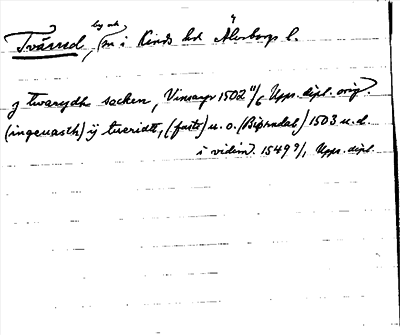 by och
Tvärred, sn i Kinds hd Älvsborgs l.
j twarydh socken, Vinsarp 1502 11/6 Upps. dipl. orig.
(ingeuasth) ij tweridt, (fasts) u. o. (Biørndal) 1503 u. d.
i vidim. 1549 9/1 Upps. dipl.